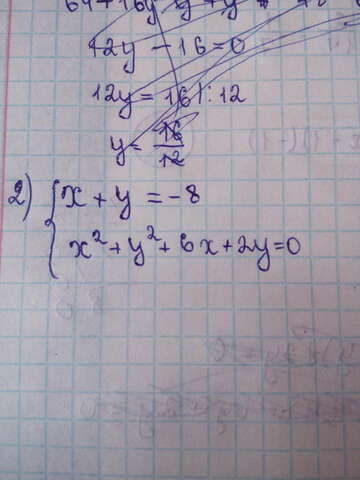 12y - 16 = 0
12y = 16 |: 12
y = 16/12
2) { x + y = -8
x² + y² + 6x + 2y = 0